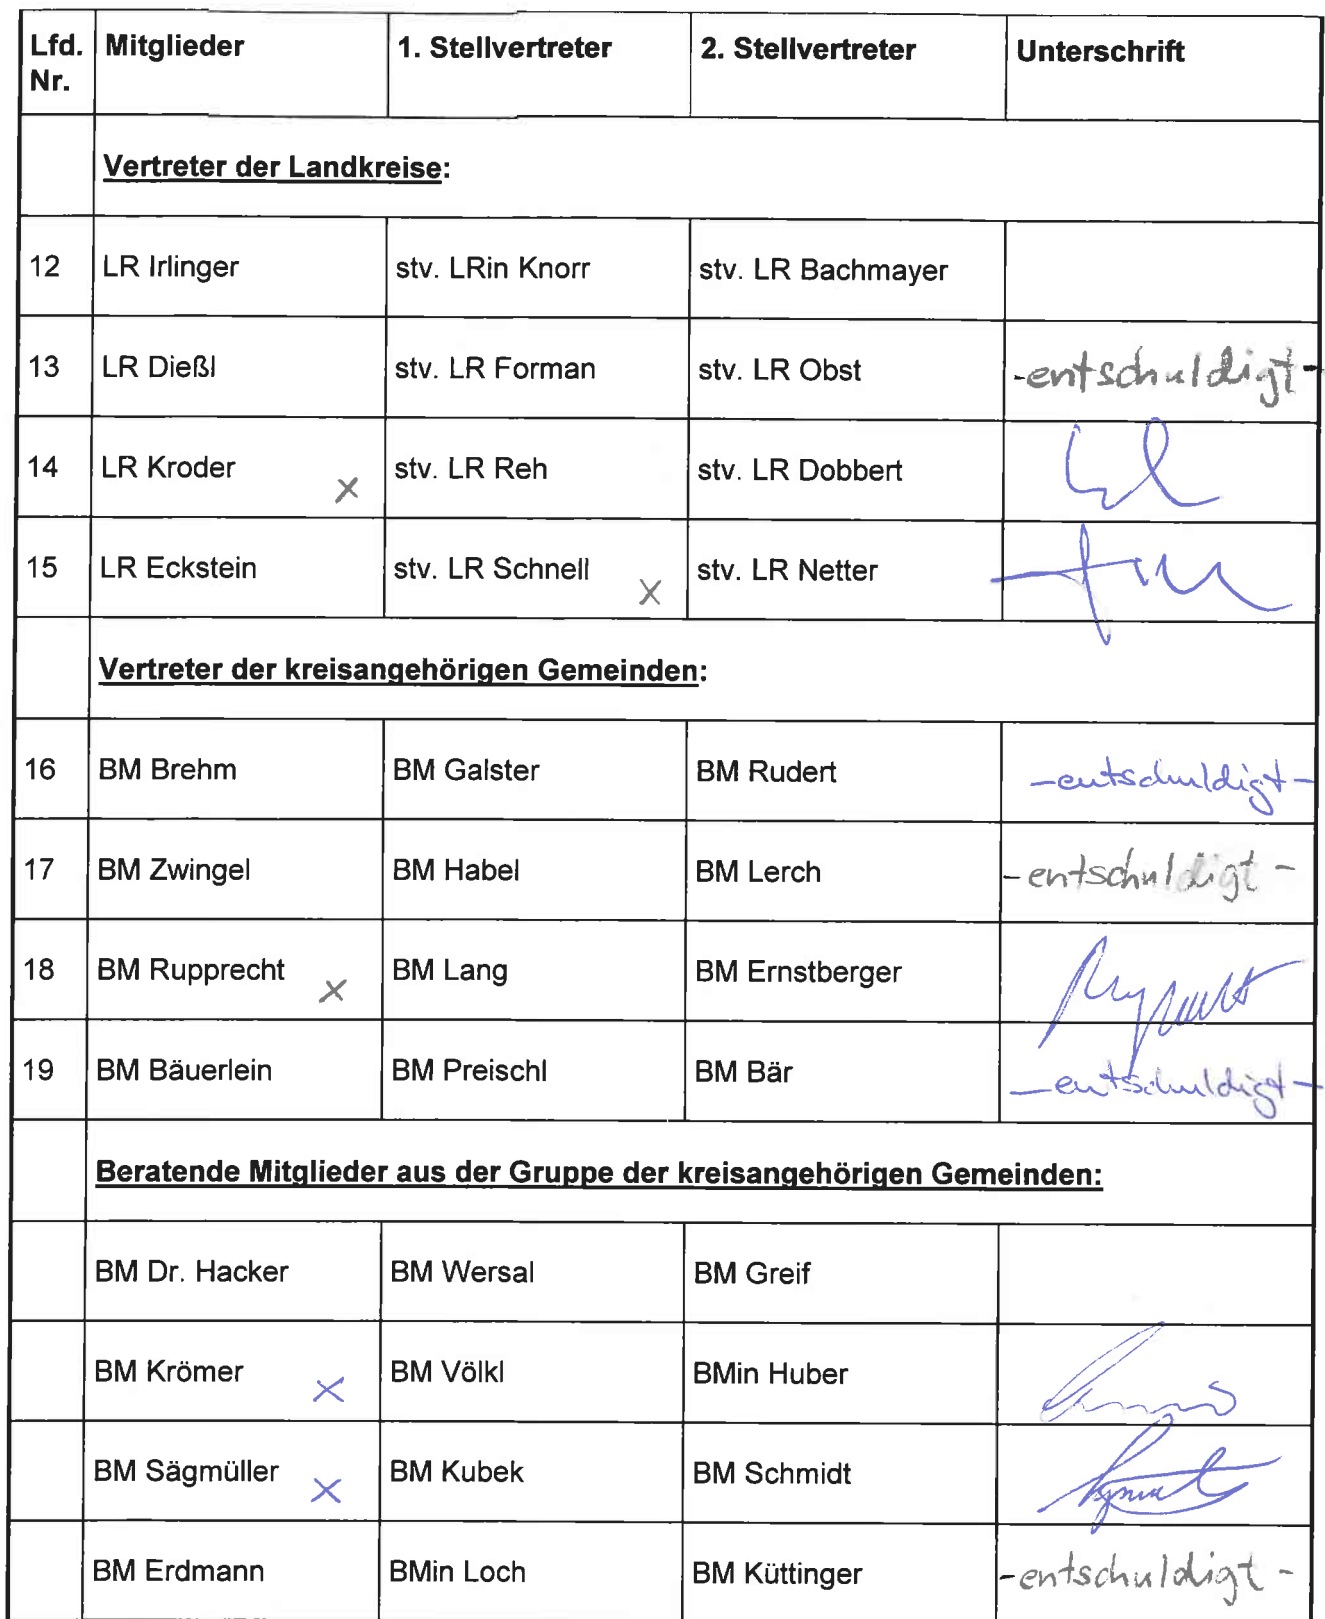 Lfd. Nr. Mitglieder 1. Stellvertreter 2. Stellvertreter Unterschrift
Vertreter der Landkreise:
12 LR Irlinger stv. LRin Knorr stv. LR Bachmayer
13 LR Dießl stv. LR Forman stv. LR Obst -entschuldigt-
14 LR Kroder X stv. LR Reh stv. LR Dobbert
15 LR Eckstein stv. LR Schnell X stv. LR Netter
Vertreter der kreisangehörigen Gemeinden:
16 BM Brehm BM Galster BM Rudert -entschuldigt-
17 BM Zwingel BM Habel BM Lerch -entschuldigt-
18 BM Rupprecht X BM Lang BM Ernstberger
19 BM Bäuerlein BM Preischl BM Bär -entschuldigt-
Beratende Mitglieder aus der Gruppe der kreisangehörigen Gemeinden:
BM Dr. Hacker BM Wersal BM Greif
BM Krömer X BM Völkl BMin Huber
BM Sägmüller X BM Kubek BM Schmidt
BM Erdmann BMin Loch BM Küttinger -entschuldigt-